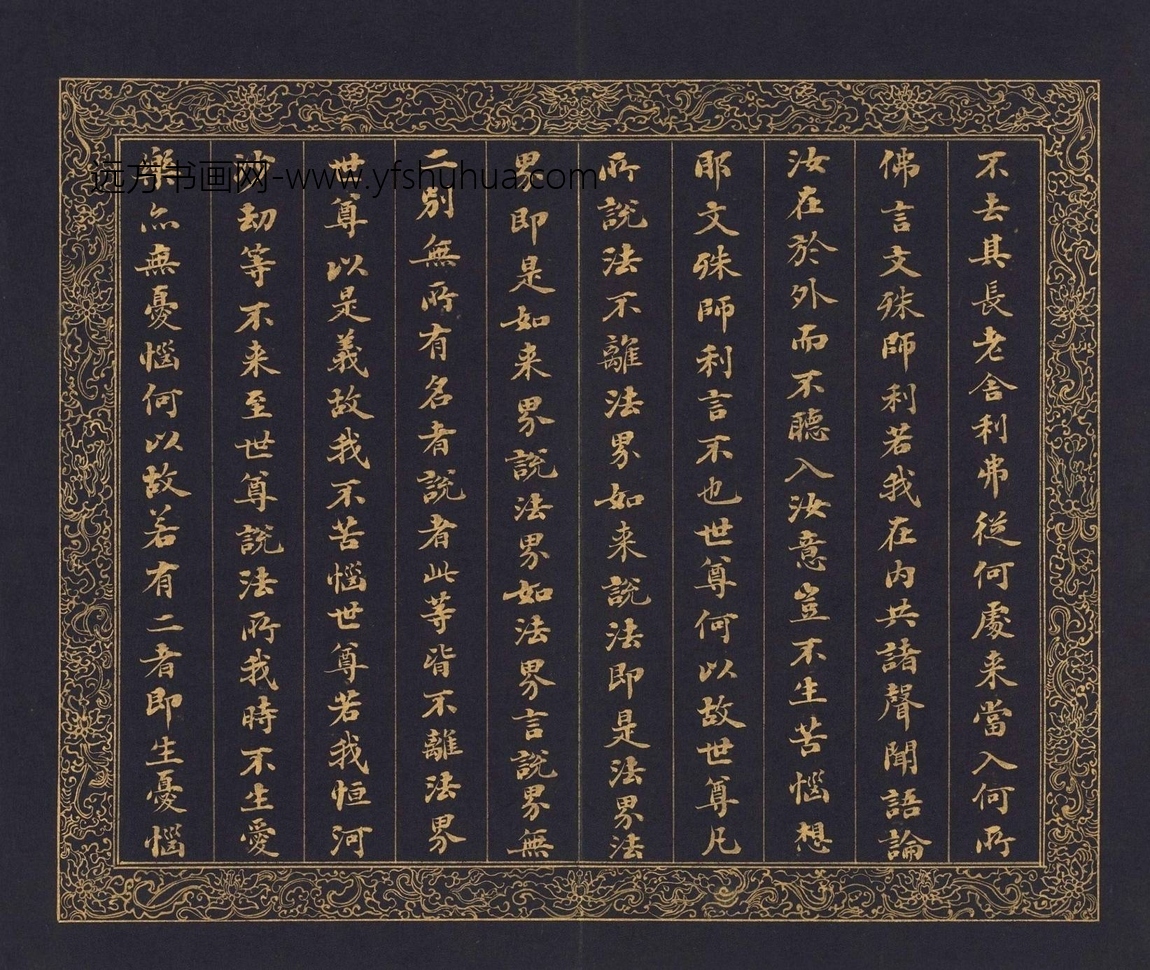 不去其長老舍利弗從何處来當入何所
佛言文殊師利若我在内共諸聲聞語論
汝在於外而不聽入汝意豈不生苦惱想
耶文殊師利言不也世尊何以故世尊凡
所說法不離法界如来說法即是法界法
界即是如来界說法界如法界言說界無
二別無所有名者說者此等皆不離法界
世尊以是義故我不苦惱世尊若我恒河
沙劫等不来至世尊說法所我時不生愛
樂亦無憂惱何以故若有二者即生憂惱
远方书画网-www.yfshuhua.com